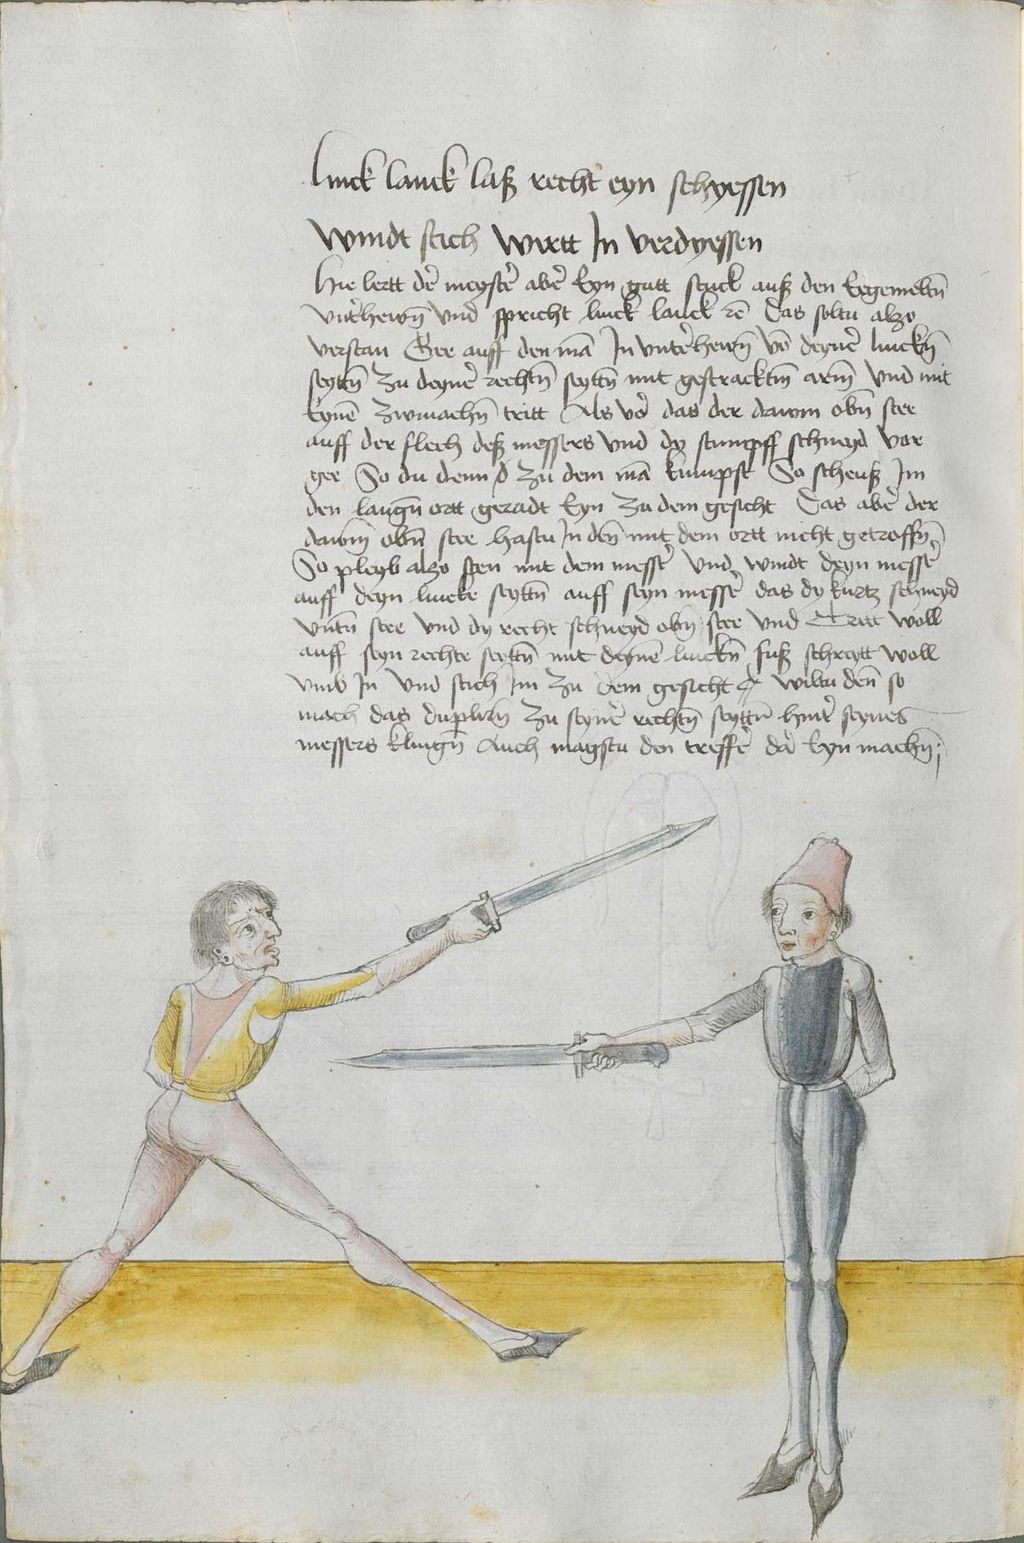 linck lanck laß recht eyn schyessen
windt stich wirtt In verdryessen
Hie lertt der meyster aber Eyn gutt stuck auß den
vnterhewen vnd spricht linck lanck rc Das soltu also
verstan Gee auff den man In vnterhewen von deyner lincken
seytten zu deyner rechten seytten mit gestracktem arm vnd mit
eynem zwimachen tritt Als vor das der dawm oben stee
auff der flech deß messers vnd dy stumpff schneyd vor
gee So du denn zu dem man kumpst So scheuß Im
den langen ortt geradt Eyn zu dem gesicht Das aber der
dawm oben stee hastu In den mit dem ortt nicht getroffen
So pleyb also sten mit dem messer vnd windt deyn messer
auff deyn lincke seytten auff seyn messer das dy kurtz schneyd
vnten stee vnd dy recht schneyd oben stee vnd Tritt woll
auff seyn rechte seytten mit deynem lincken fuß schreytt woll
vmb In vnd stich Im zu dem gesicht wiltu denn so
mach das duplirn zu seyner rechten seytten hinter seynes
messers klingen Auch magstu den treffer da Eyn machen